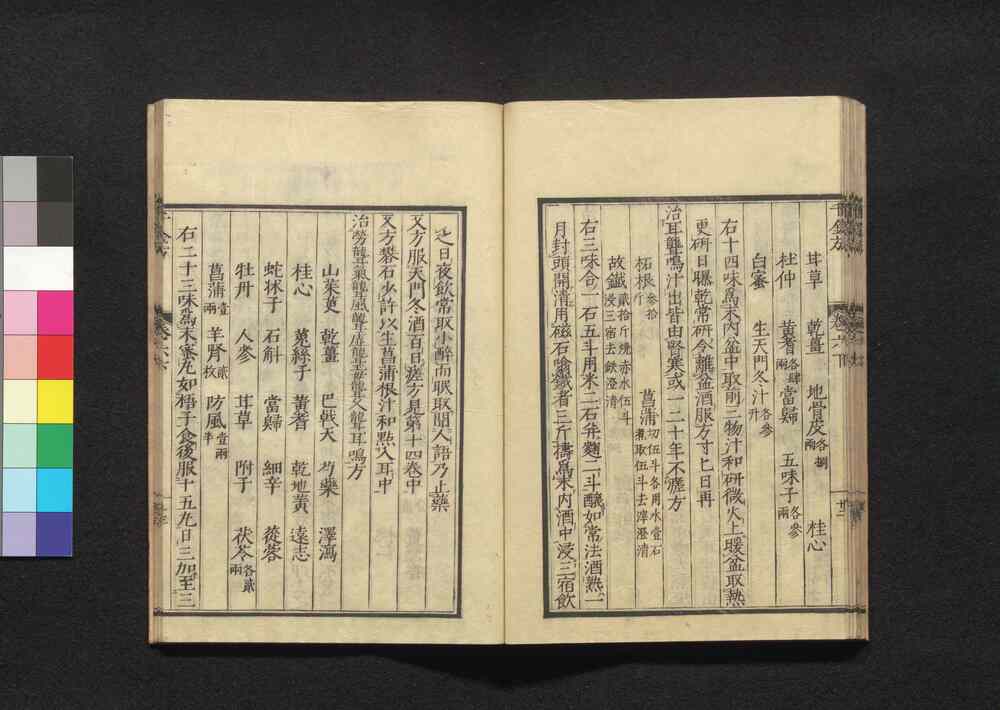 甘草 乾薑 地骨皮各捌兩 桂心
杜仲 黃耆各肆兩 當歸 五味子各參兩
白蜜 生天門冬汁各參升
右十四味爲末內盆中取前三物汁和研微火上暖盆取熱
更研日曝乾常研令離盆酒服方寸匕日再
治耳聾鳴汁出皆由腎寒或一二十年不瘥方
柘根參拾斤 菖蒲切伍斗各用水壹石煮取伍斗去滓澄清
故鐵貳拾斤燒赤水伍斗浸三宿去鐵澄清
右三味合一石五斗用米二石幷麴二斗釀如常法酒熟一
月封頭開清用磁石吸鐵者三斤擣爲末內酒中浸三宿飲
之日夜飲常取小醉而眠取聞人語乃止藥
又方服天門冬酒百日瘥方見第十四卷中
又方礬石少許以生菖蒲根汁和點入耳中
治勞聾氣聾風聾虛聾毒聾久聾耳鳴方
山茱萸 乾薑 巴戟天 芍藥 澤瀉
桂心 菟絲子 黃耆 乾地黃 遠志
蛇牀子 石斛 當歸 細辛 蓯蓉
牡丹 人參 甘草 附子 茯苓各貳兩
菖蒲壹兩 羊腎貳枚 防風壹兩半
右二十三味爲末蜜丸如梧子食後服十五丸日三加至三